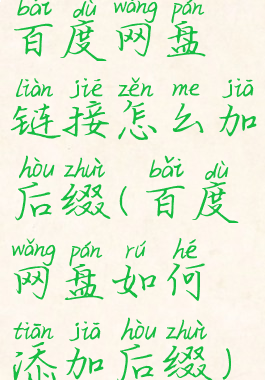 bǎi dù wǎng pán
百度网盘
liàn jiē zěn me jiā
链接怎么加
hòu zhuì bǎi dù
后缀(百度
wǎng pán rú hé
网盘如何
tiān jiā hòu zhuì
添加后缀)